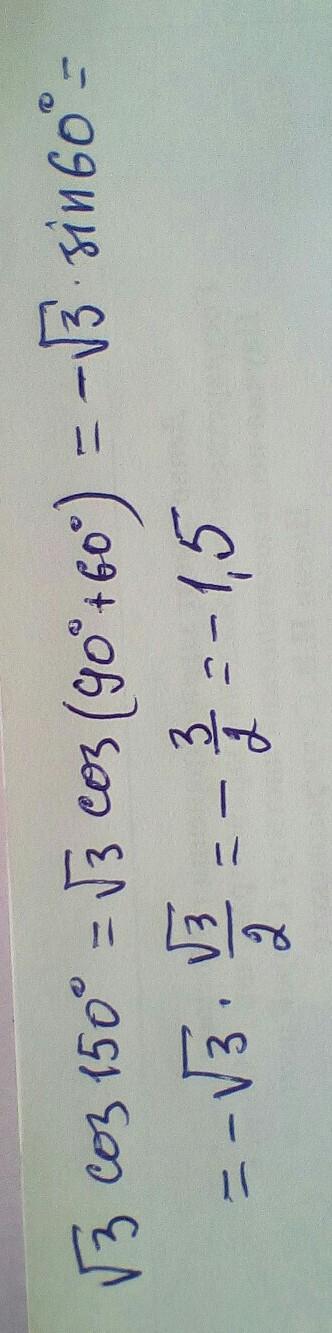 √3 cos 150° = √3 cos(90°+60°) = -√3 · sin 60° =
= -√3 · √3/2 = - 3/2 = -1,5